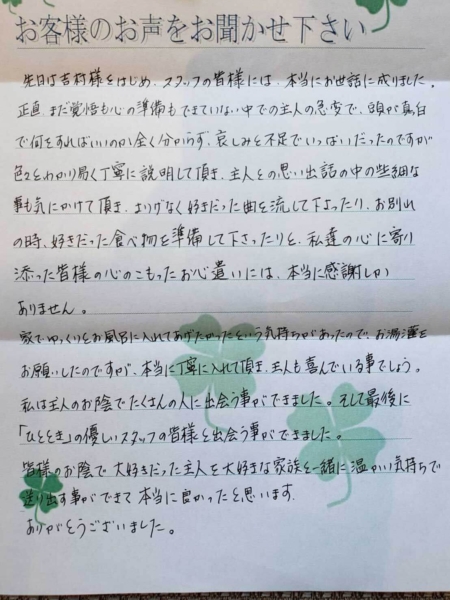 お客様のお声をお聞かせ下さい
先日は吉村様をはじめ、スタッフの皆様には、本当にお世話に成りました。
正直、まだ覚悟も心の準備もできていない中での主人の急変で、頭が真白
で何をすればいいのか全く分からず、哀しみと不足でいっぱいだったのですが
色々とわかり易く丁寧に説明して頂き、主人との思い出話の中の些細な
事も気にかけて頂き、さりげなく好きだった曲を流して下さったり、お別れ
の時、好きだった食べ物を準備して下さったりと、私達の心に寄り
添った皆様の心のこもったお心遣いには、本当に感謝しか
ありません。
家でゆっくりとお風呂に入れてあげたかったという気持ちがあったので、お湯灌を
お願いしたのですが、本当に丁寧に入れて頂き、主人も喜んでいる事でしょう。
私は主人のお陰でたくさんの人に出会う事ができました。そして最後に
「ひととき」の優しいスタッフの皆様と出会う事ができました。
皆様のお陰で大好きだった主人を大好きな家族と一緒に温かい気持ちで
送り出す事ができて本当に良かったと思います。
ありがとうございました。